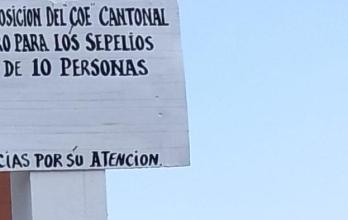 OSICION DEL COE CANTONAL
RO PARA LOS SEPELIOS
DE 10 PERSONAS
CIAS POR SU ATENCION.